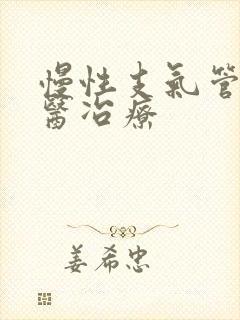 慢性支氣管
醫治療
姜希忠